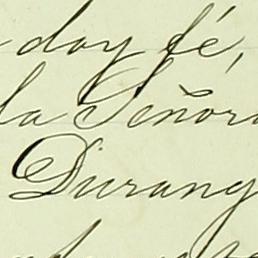 doy fé,
la Señora
Durang